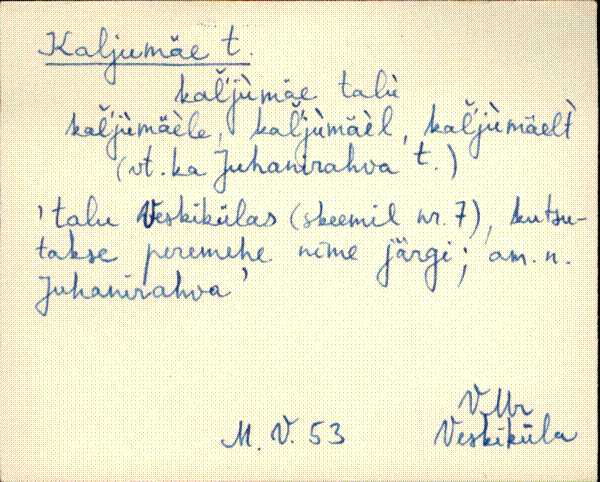 Kaljumäe t.
kal̆'jùmäe talù
kal̆'jùmäèle, kal̆'jùmäèl, kal̆'jùmäèlt
(vt. ka Juhanirahva t.)
'talu Veskikülas (skeemil nr. 7), kutsu-
takse peremehe nime järgi; am. n.
Juhanirahva'
V.Mr
M. V. 53 Veskiküla